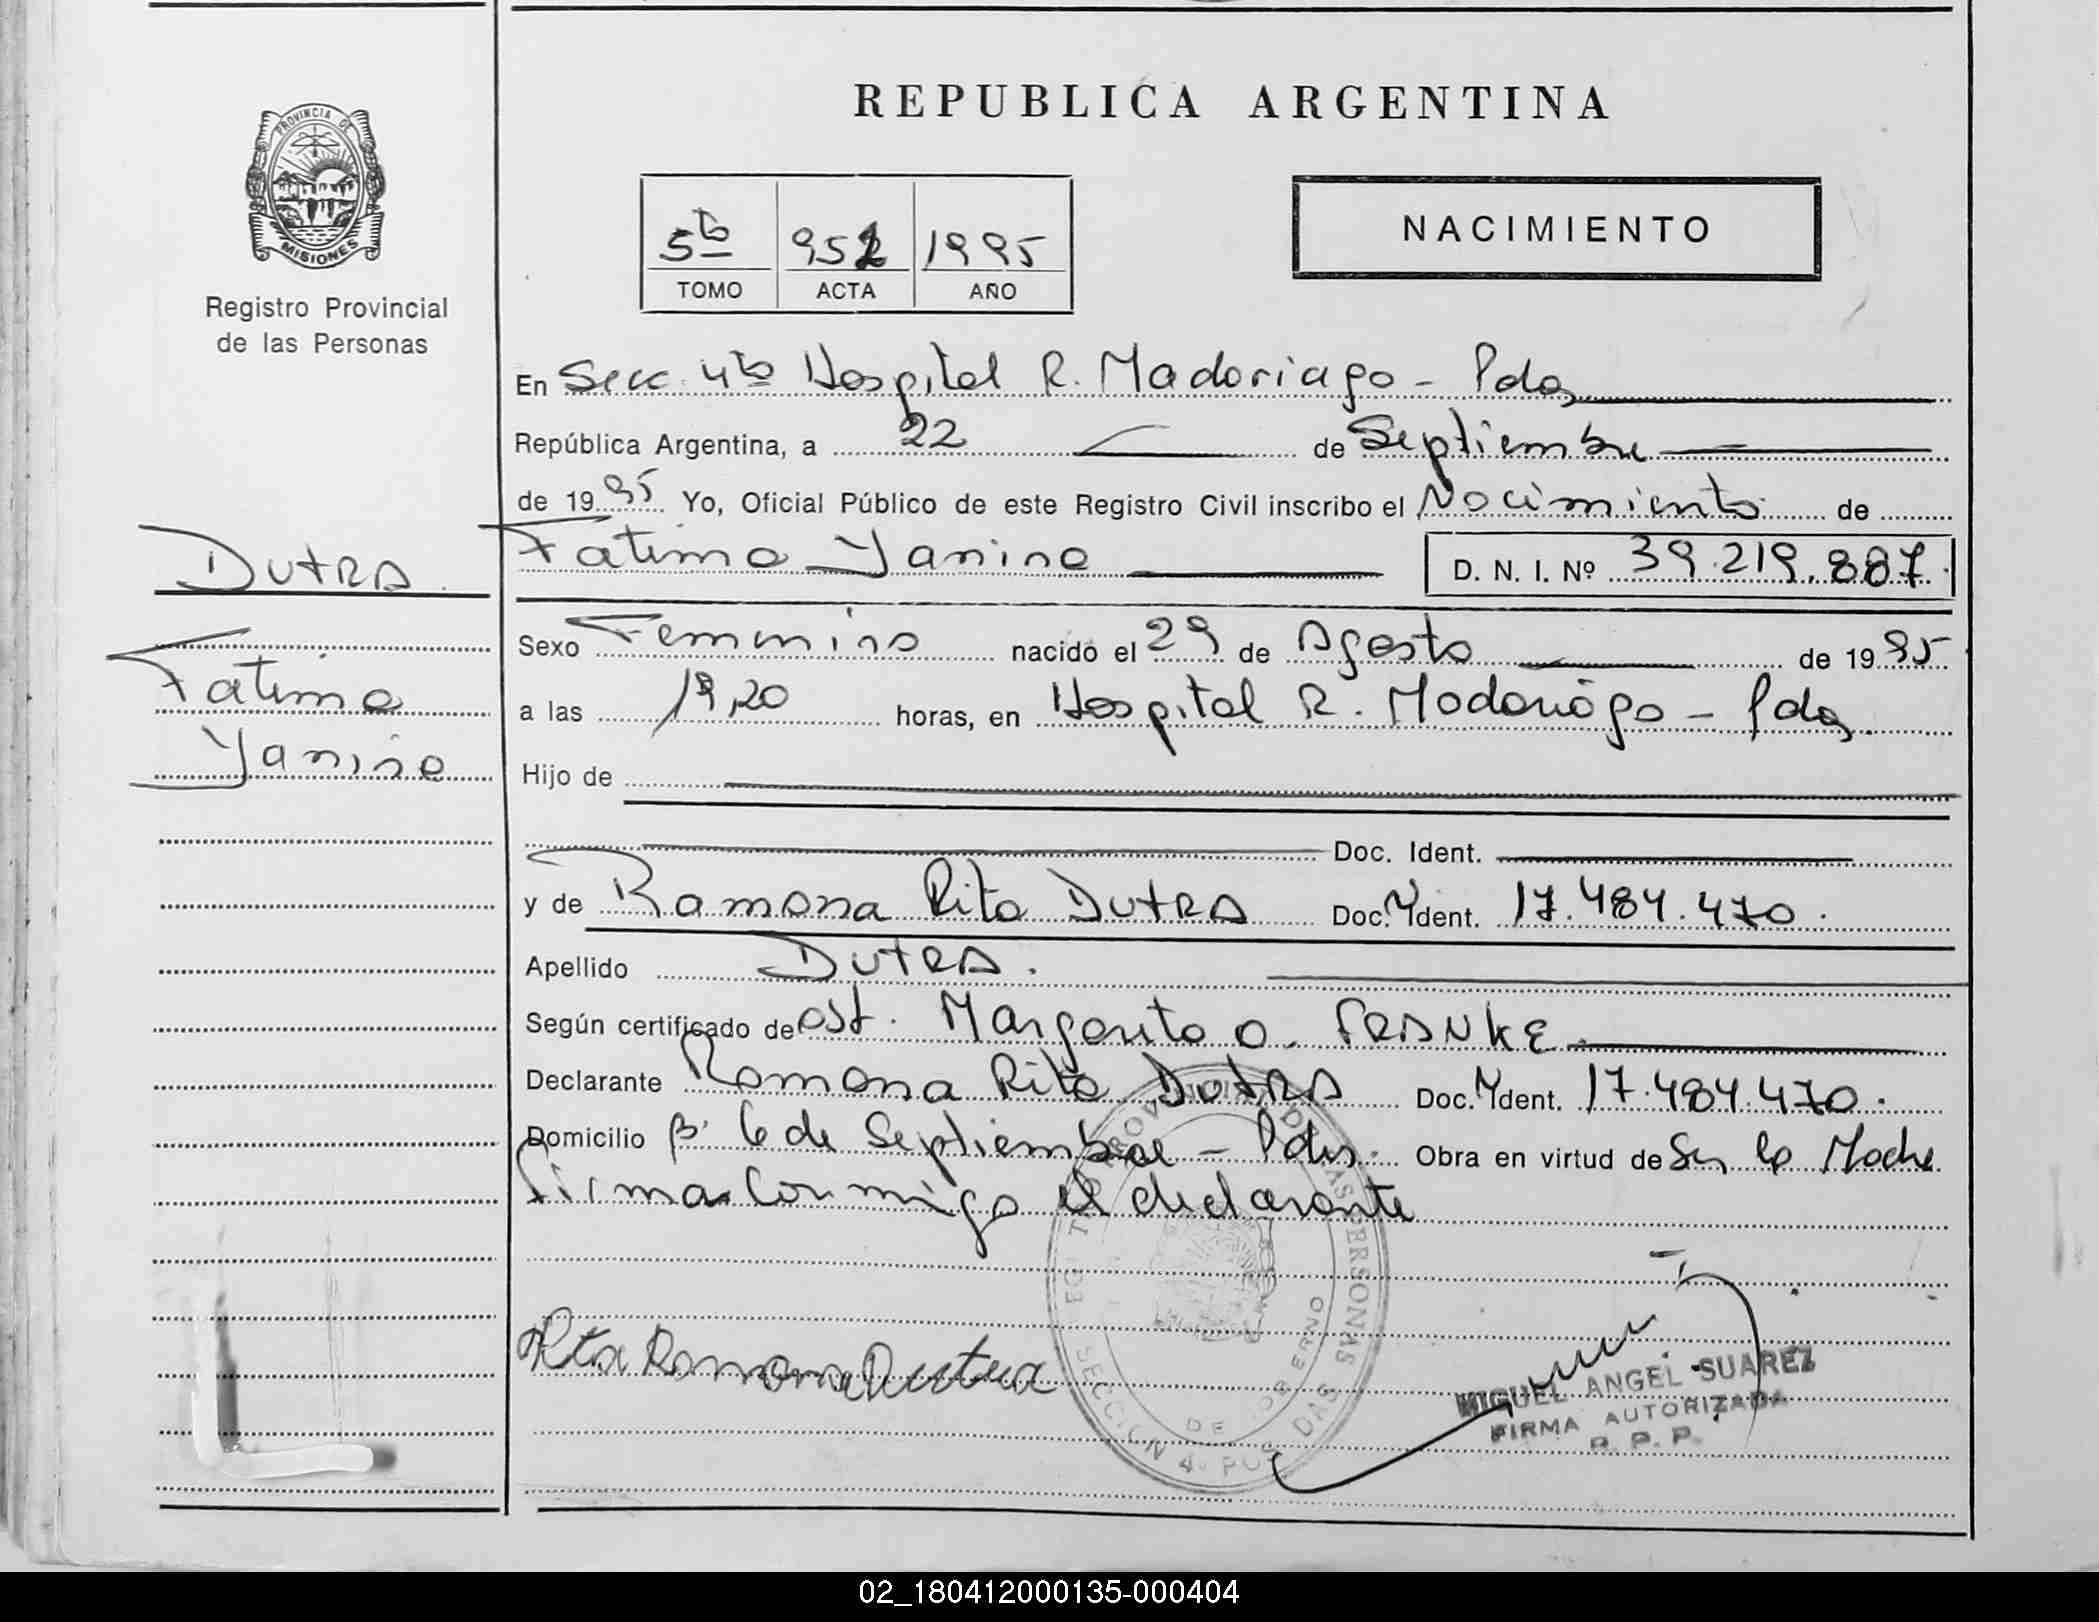 REPUBLICA ARGENTINA
PROVINCIA DE
MISIONES
Registro Provincial
de las Personas
5to 952 1995
TOMO ACTA AÑO
NACIMIENTO
En Secc. 4ta Hospital R. Madariaga - Pdas
República Argentina, a 22 de Septiembre
de 1995 Yo, Oficial Público de este Registro Civil inscribo el Nacimiento de
Fatima Yanina D. N. I. Nº 39.219.887.
DUTRA
Fatima
Yanina
Sexo Femenino nacido el 29 de Agosto de 1995
a las 19,20 horas, en Hospital R. Madariaga - Pdas.
Hijo de
Doc. Ident.
y de Ramona Rita DUTRA Doc. Ident. 17.484.470.
Apellido DUTRA.
Según certificado de Obst. Margarita O. FRANKE
Declarante Ramona Rita DUTRA Doc. Ident. 17.484.470.
Domicilio Bº 6 de Septiembre - Pdas. Obra en virtud de Ser la Madre
Firma Conmigo el declarante
Rita Ramona Dutra
MIGUEL ANGEL SUAREZ
FIRMA AUTORIZADA
R. P. P.
02_180412000135-000404